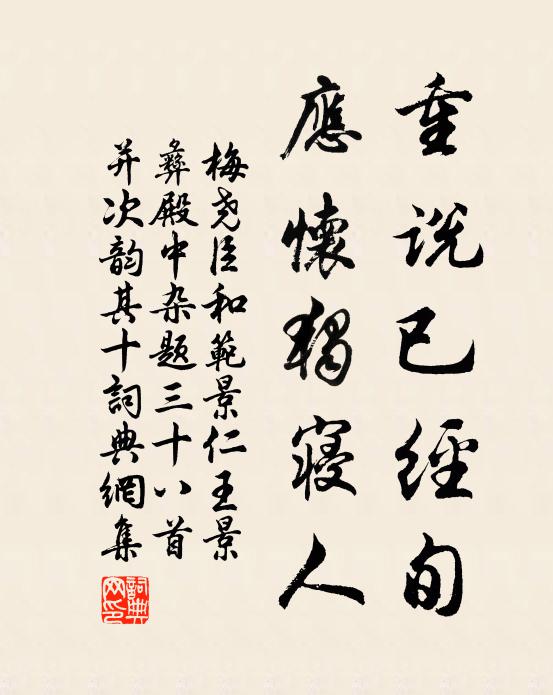 重说已經旬
應懷獨寢人
梅尧臣和範景仁王景
彝殿中杂题三十八首
并次韵其十詞典網集
詞典网印